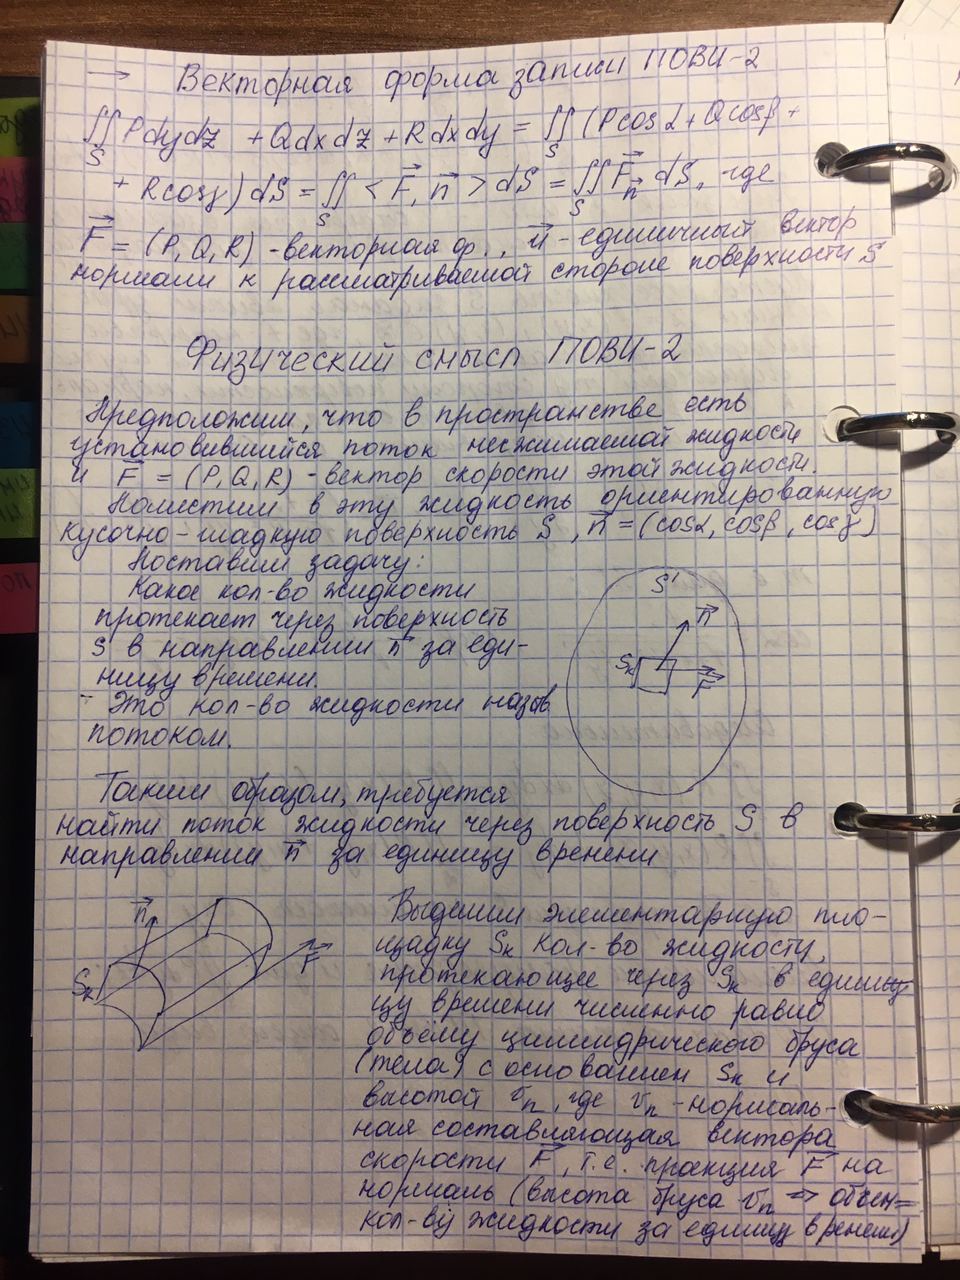 → Векторная форма записи ПОВИ-2
∬_S Pdydz + Qdxdz + Rdxdy = ∬_S (Pcosα + Qcosβ +
+ Rcosγ) dS = ∬_S < F⃗, n⃗ > dS = ∬_S F⃗_n⃗ dS, где
F⃗ = (P, Q, R) - векторная ф., n⃗ - единичный вектор
нормали к рассматриваемой стороне поверхности S
Физический смысл ПОВИ-2
Предположим, что в пространстве есть
установившийся поток несжимаемой жидкости
и F⃗ = (P, Q, R) - вектор скорости этой жидкости.
Поместим в эту жидкость ориентированную
кусочно-гладкую поверхность S, n⃗ = (cosα, cosβ, cosγ)
Поставим задачу:
Какое кол-во жидкости
протекает через поверхность
S в направлении n⃗ за еди-
ницу времени.
- Это кол-во жидкости назыв
потоком.
S
n⃗
Sк
F⃗
Таким образом, требуется
найти поток жидкости через поверхность S в
направлении n⃗ за единицу времени
n⃗
Sк
F⃗
Выделим элементарную пло-
щадку Sк кол-во жидкости,
протекающее через Sк в едини
цу времени численно равно
объёму цилиндрического бруса
(тела) с основанием Sк и
высотой vₙ, где vₙ - нормаль-
ная составляющая вектора
скорости F⃗, т.е. проекция F⃗ на
нормаль (высота бруса vₙ => объем=
кол-ву жидкости за единицу времени)